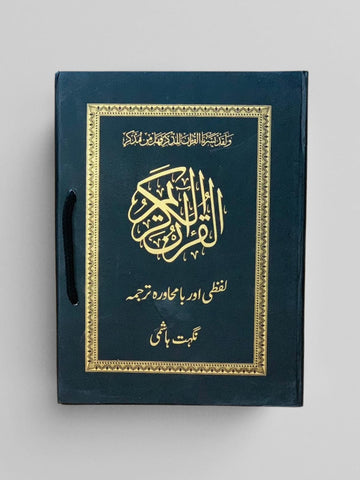 ولقد يسرنا القرآن للذكر فهل من مدكر
القرآن الكريم
لفظی اور بامحاورہ ترجمہ
نگہت ہاشمی